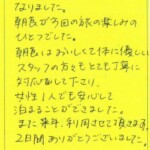 なりました。
朝食が今回の旅の楽しみの
ひとつでした。
朝食はおいしくて体に優しい
スタッフの方もとても丁寧に
対応して下さり、
女性1人でも安心して
泊まることができました。
また来年、利用させて頂きます。
2日間ありがとうございました。